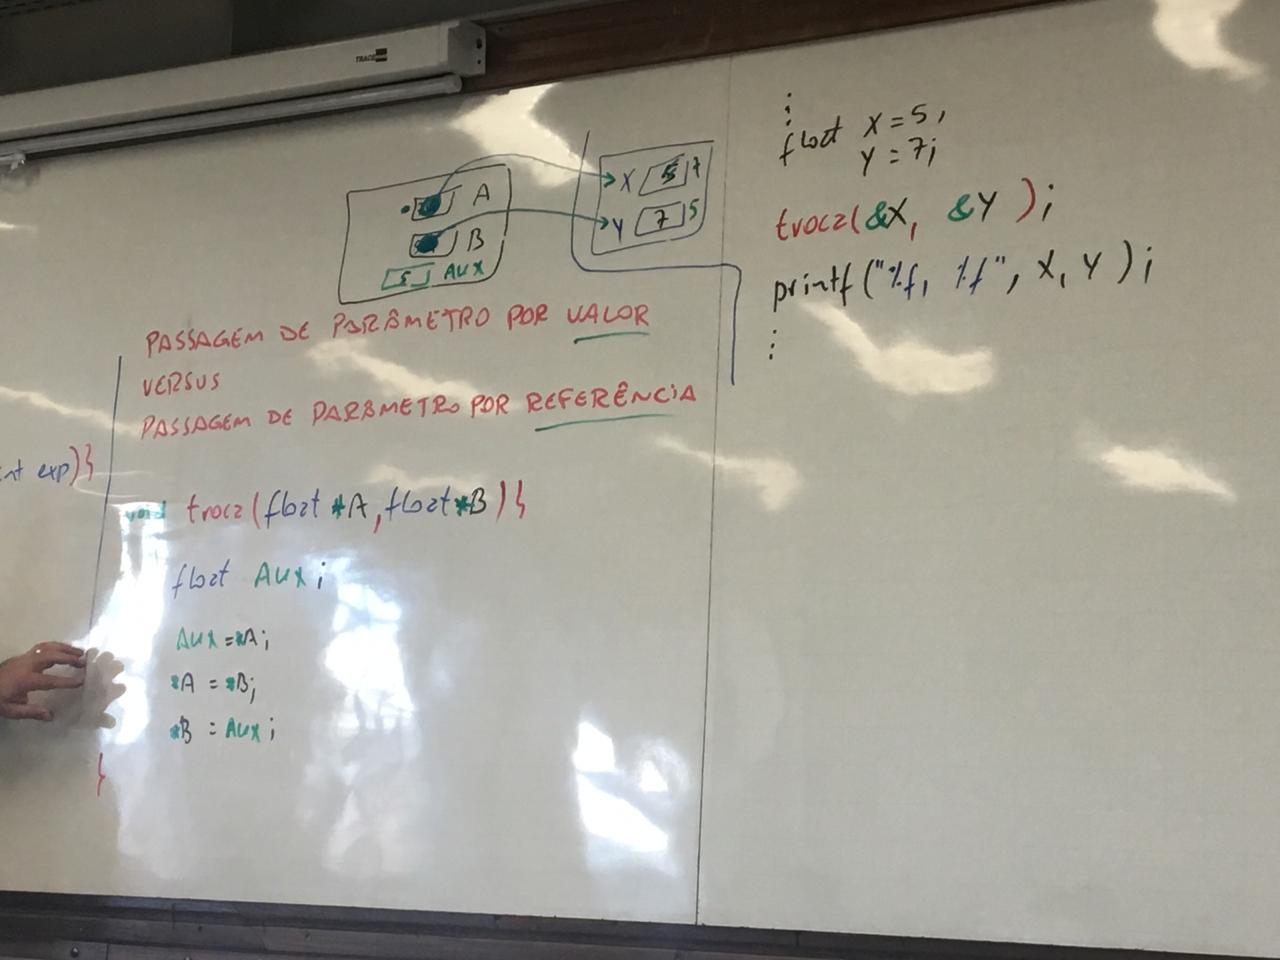 TRACE
A
B
5 AUX
X 5 7
Y 7 5
PASSAGEM DE PARÂMETRO POR VALOR
VERSUS
PASSAGEM DE PARÂMETRO POR REFERÊNCIA
int exp){
void troca(float *A, float *B){
float AUX;
AUX = *A;
*A = *B;
*B = AUX;
}
:
float X = 5,
Y = 7;
troca(&X, &Y);
printf("%f, %f", X, Y);
: